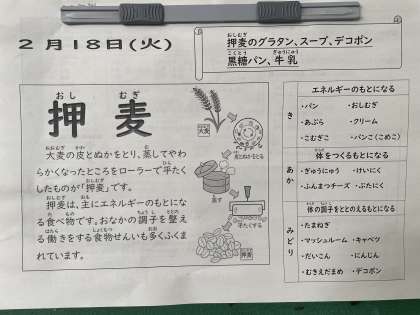 2月18日(火)
押麦のグラタン、スープ、デコポン
黒糖パン、牛乳
押麦
大麦の皮とぬかをとり、蒸してやわ
らかくなったところをローラーで平たく
したものが「押麦」です。
押麦は、主にエネルギーのもとにな
る食べ物です。おなかの調子を整え
る働きをする食物せんいも多くふくま
れています。
大麦
皮とぬかをとる
蒸す
平たくする
押麦
エネルギーのもとになる
き
・パン ・おしむぎ
・あぶら ・クリーム
・こむぎこ ・パンこ(こめこ)
体をつくるもとになる
あか
・ぎゅうにゅう ・けいにく
・ふんまつチーズ ・ぶたにく
体の調子をととのえるもとになる
みどり
・たまねぎ
・マッシュルーム ・キャベツ
・だいこん ・にんじん
・むきえだまめ ・デコポン